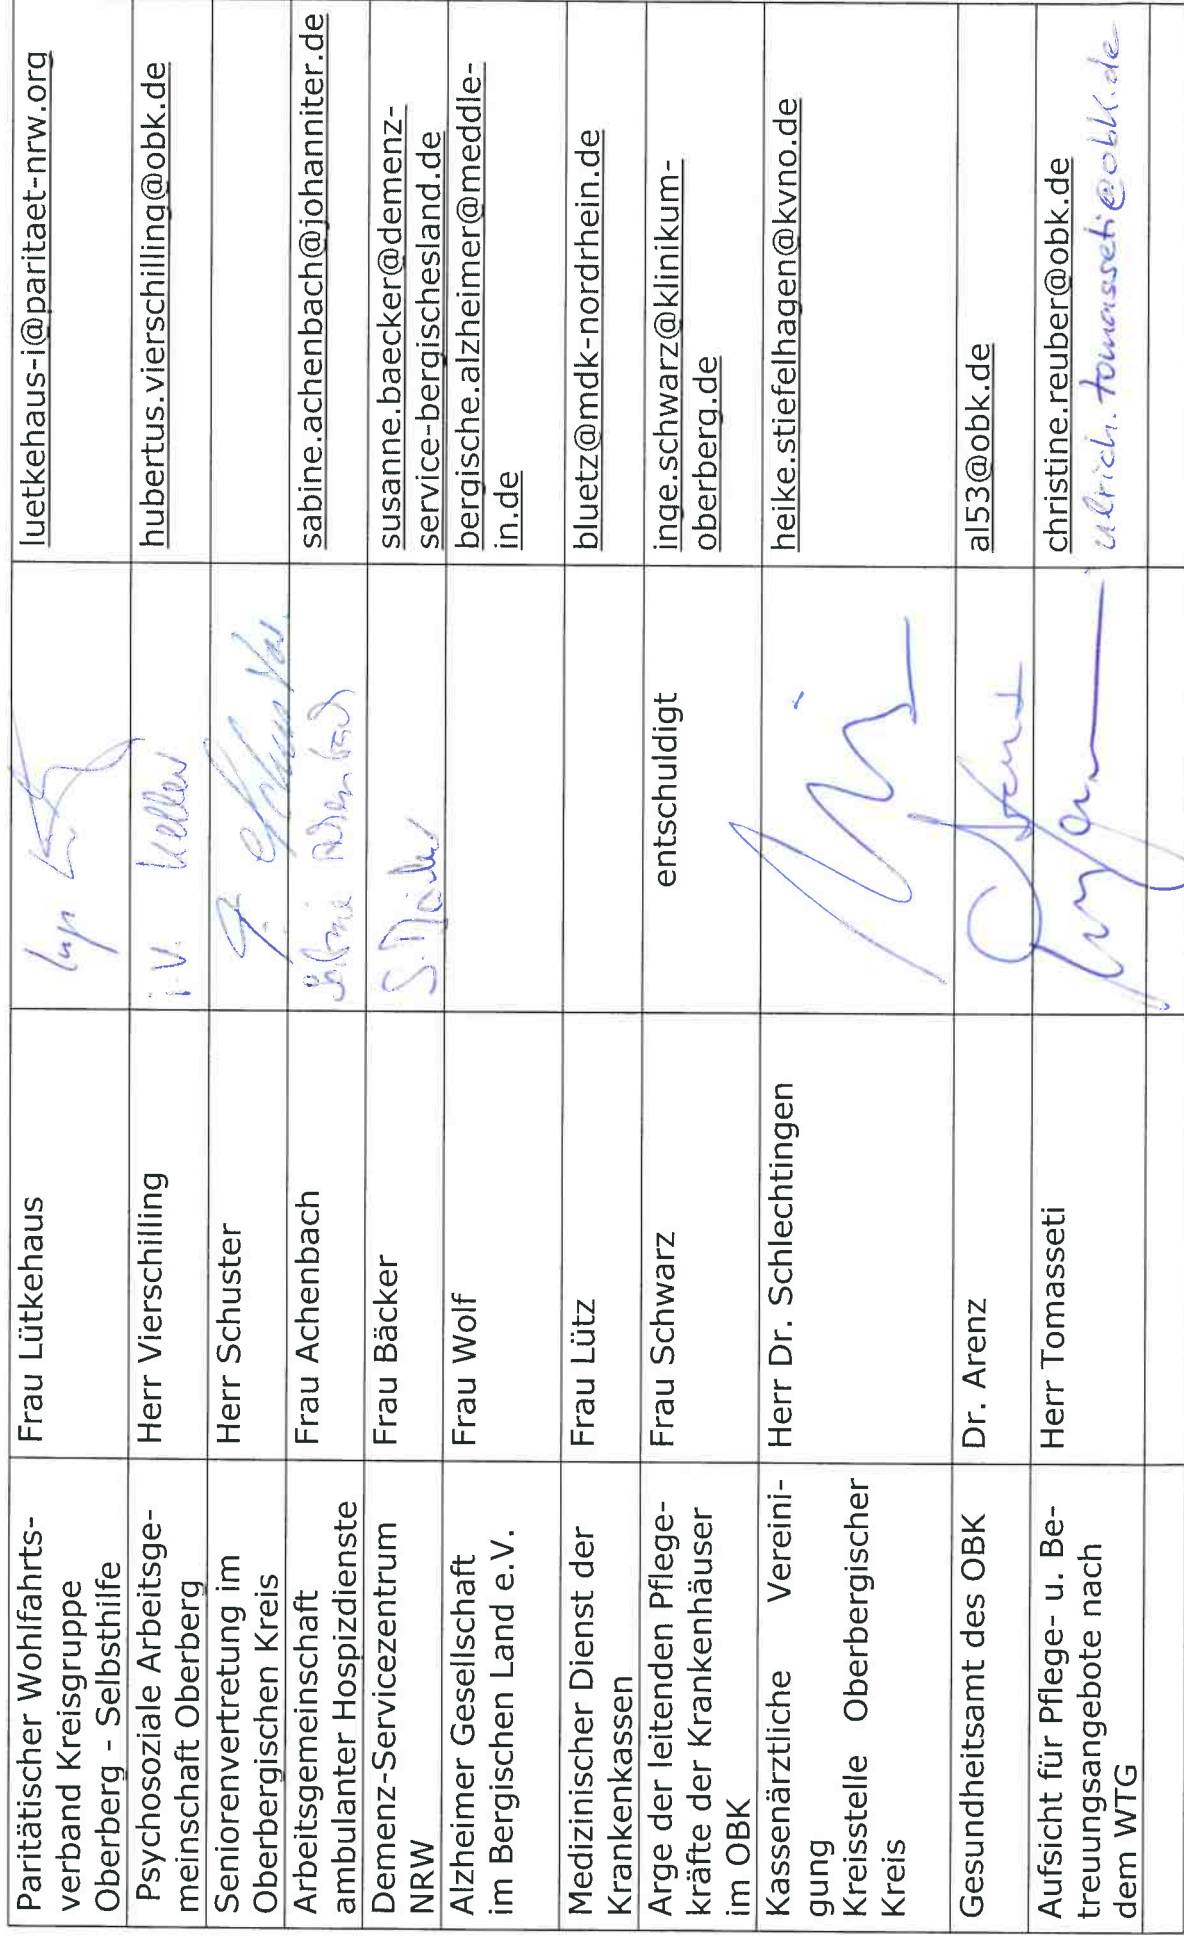 Paritätischer Wohlfahrts-
verband Kreisgruppe
Oberberg - Selbsthilfe
Frau Lütkehaus
luetkehaus-i@paritaet-nrw.org
Psychosoziale Arbeitsge-
meinschaft Oberberg
Herr Vierschilling
i.V. Keller
hubertus.vierschilling@obk.de
Seniorenvertretung im
Oberbergischen Kreis
Herr Schuster
Arbeitsgemeinschaft
ambulanter Hospizdienste
Frau Achenbach
Sabine Achenbach
sabine.achenbach@johanniter.de
Demenz-Servicezentrum
NRW
Frau Bäcker
S. Bäcker
susanne.baecker@demenz-
service-bergischesland.de
Alzheimer Gesellschaft
im Bergischen Land e.V.
Frau Wolf
bergische.alzheimer@meddle-
in.de
Medizinischer Dienst der
Krankenkassen
Frau Lütz
bluetz@mdk-nordrhein.de
Arge der leitenden Pflege-
kräfte der Krankenhäuser
im OBK
Frau Schwarz
entschuldigt
inge.schwarz@klinikum-
oberberg.de
Kassenärztliche Vereini-
gung
Kreisstelle Oberbergischer
Kreis
Herr Dr. Schlechtingen
heike.stiefelhagen@kvno.de
Gesundheitsamt des OBK
Dr. Arenz
al53@obk.de
Aufsicht für Pflege- u. Be-
treuungsangebote nach
dem WTG
Herr Tomasseti
christine.reuber@obk.de
ulrich.tomasseti@obk.de